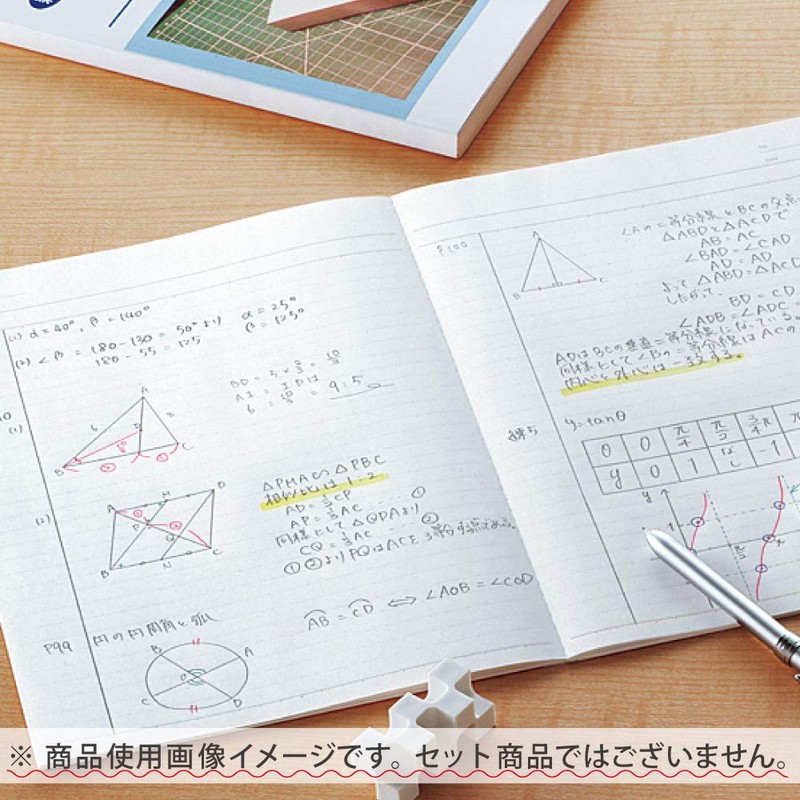 (1) α=40°, β=140°
(2) ∠β = 180-130 = 50°より
180-55 = 125
α=25°
β=125°
(1)
A
6
3
D
B
C
9:5
(2)
A
M
D
P
Q
B
N
C
△PMA∽△PBC
相似比は1:2
AD=
CP
AP=⅓AC ①
同様にして△QDAより
CQ=⅓AC ②
①②よりPQはACを3等分する
P99
円の円周角と弧
B
A
O
C
D
AB = CD ⇔ ∠AOB = ∠COD
P100
A
B
C
∠Aの二等分線とBCの交点
△ABDと△ACDで
AB=AC
∠BAD=∠CAD
AD=AD
よって△ABD=△ACD
したがって、
BD=CD
∠ADB=∠ADC=
ADはBCの垂直二等分線になっている。
同様にして∠Bの二等分線はACの
内心と外心は一致する。
練5
y=tanθ
θ 0 π/4 π/2 3/4π π
y 0 1 なし -1
y
※ 商品使用画像イメージです。セット商品ではございません。